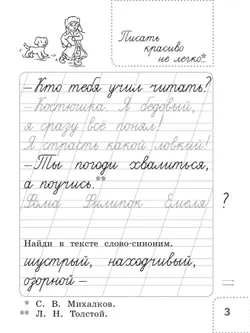 Писать
красиво
не легко*
– Кто тебя учил читать?
– Костюшка. Я бедовый,
я сразу всё понял!
Я страсть какой ловкий!
– Ты погоди хвалиться,
а поучись.**
Фома Филипок Емеля ?
Найди в тексте слово-синоним.
шустрый, находчивый,
озорной –
* С. В. Михалков.
** Л. Н. Толстой.
3